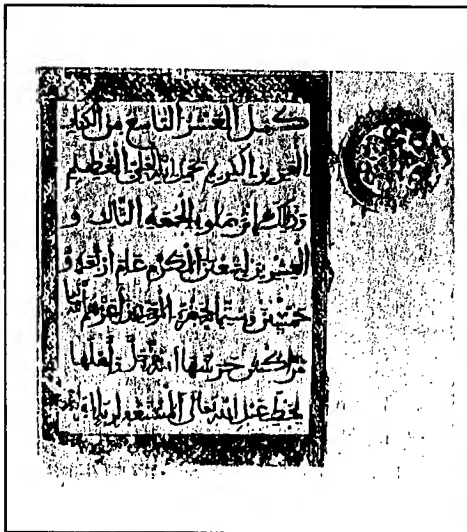 كمل العشر التاسع من الكتاب
العزيز الكريم بحمد الله العلي العظيم
وذلك اثر صلوة الجمعة الثالث و
العشرين لشعبن المكرم عام أربعة و
خمسين وستماية بحضرة الموحدين أعزهم الله
مراكش حرسها الله وأهلها
بخط عبد الله تعالى المستغفر